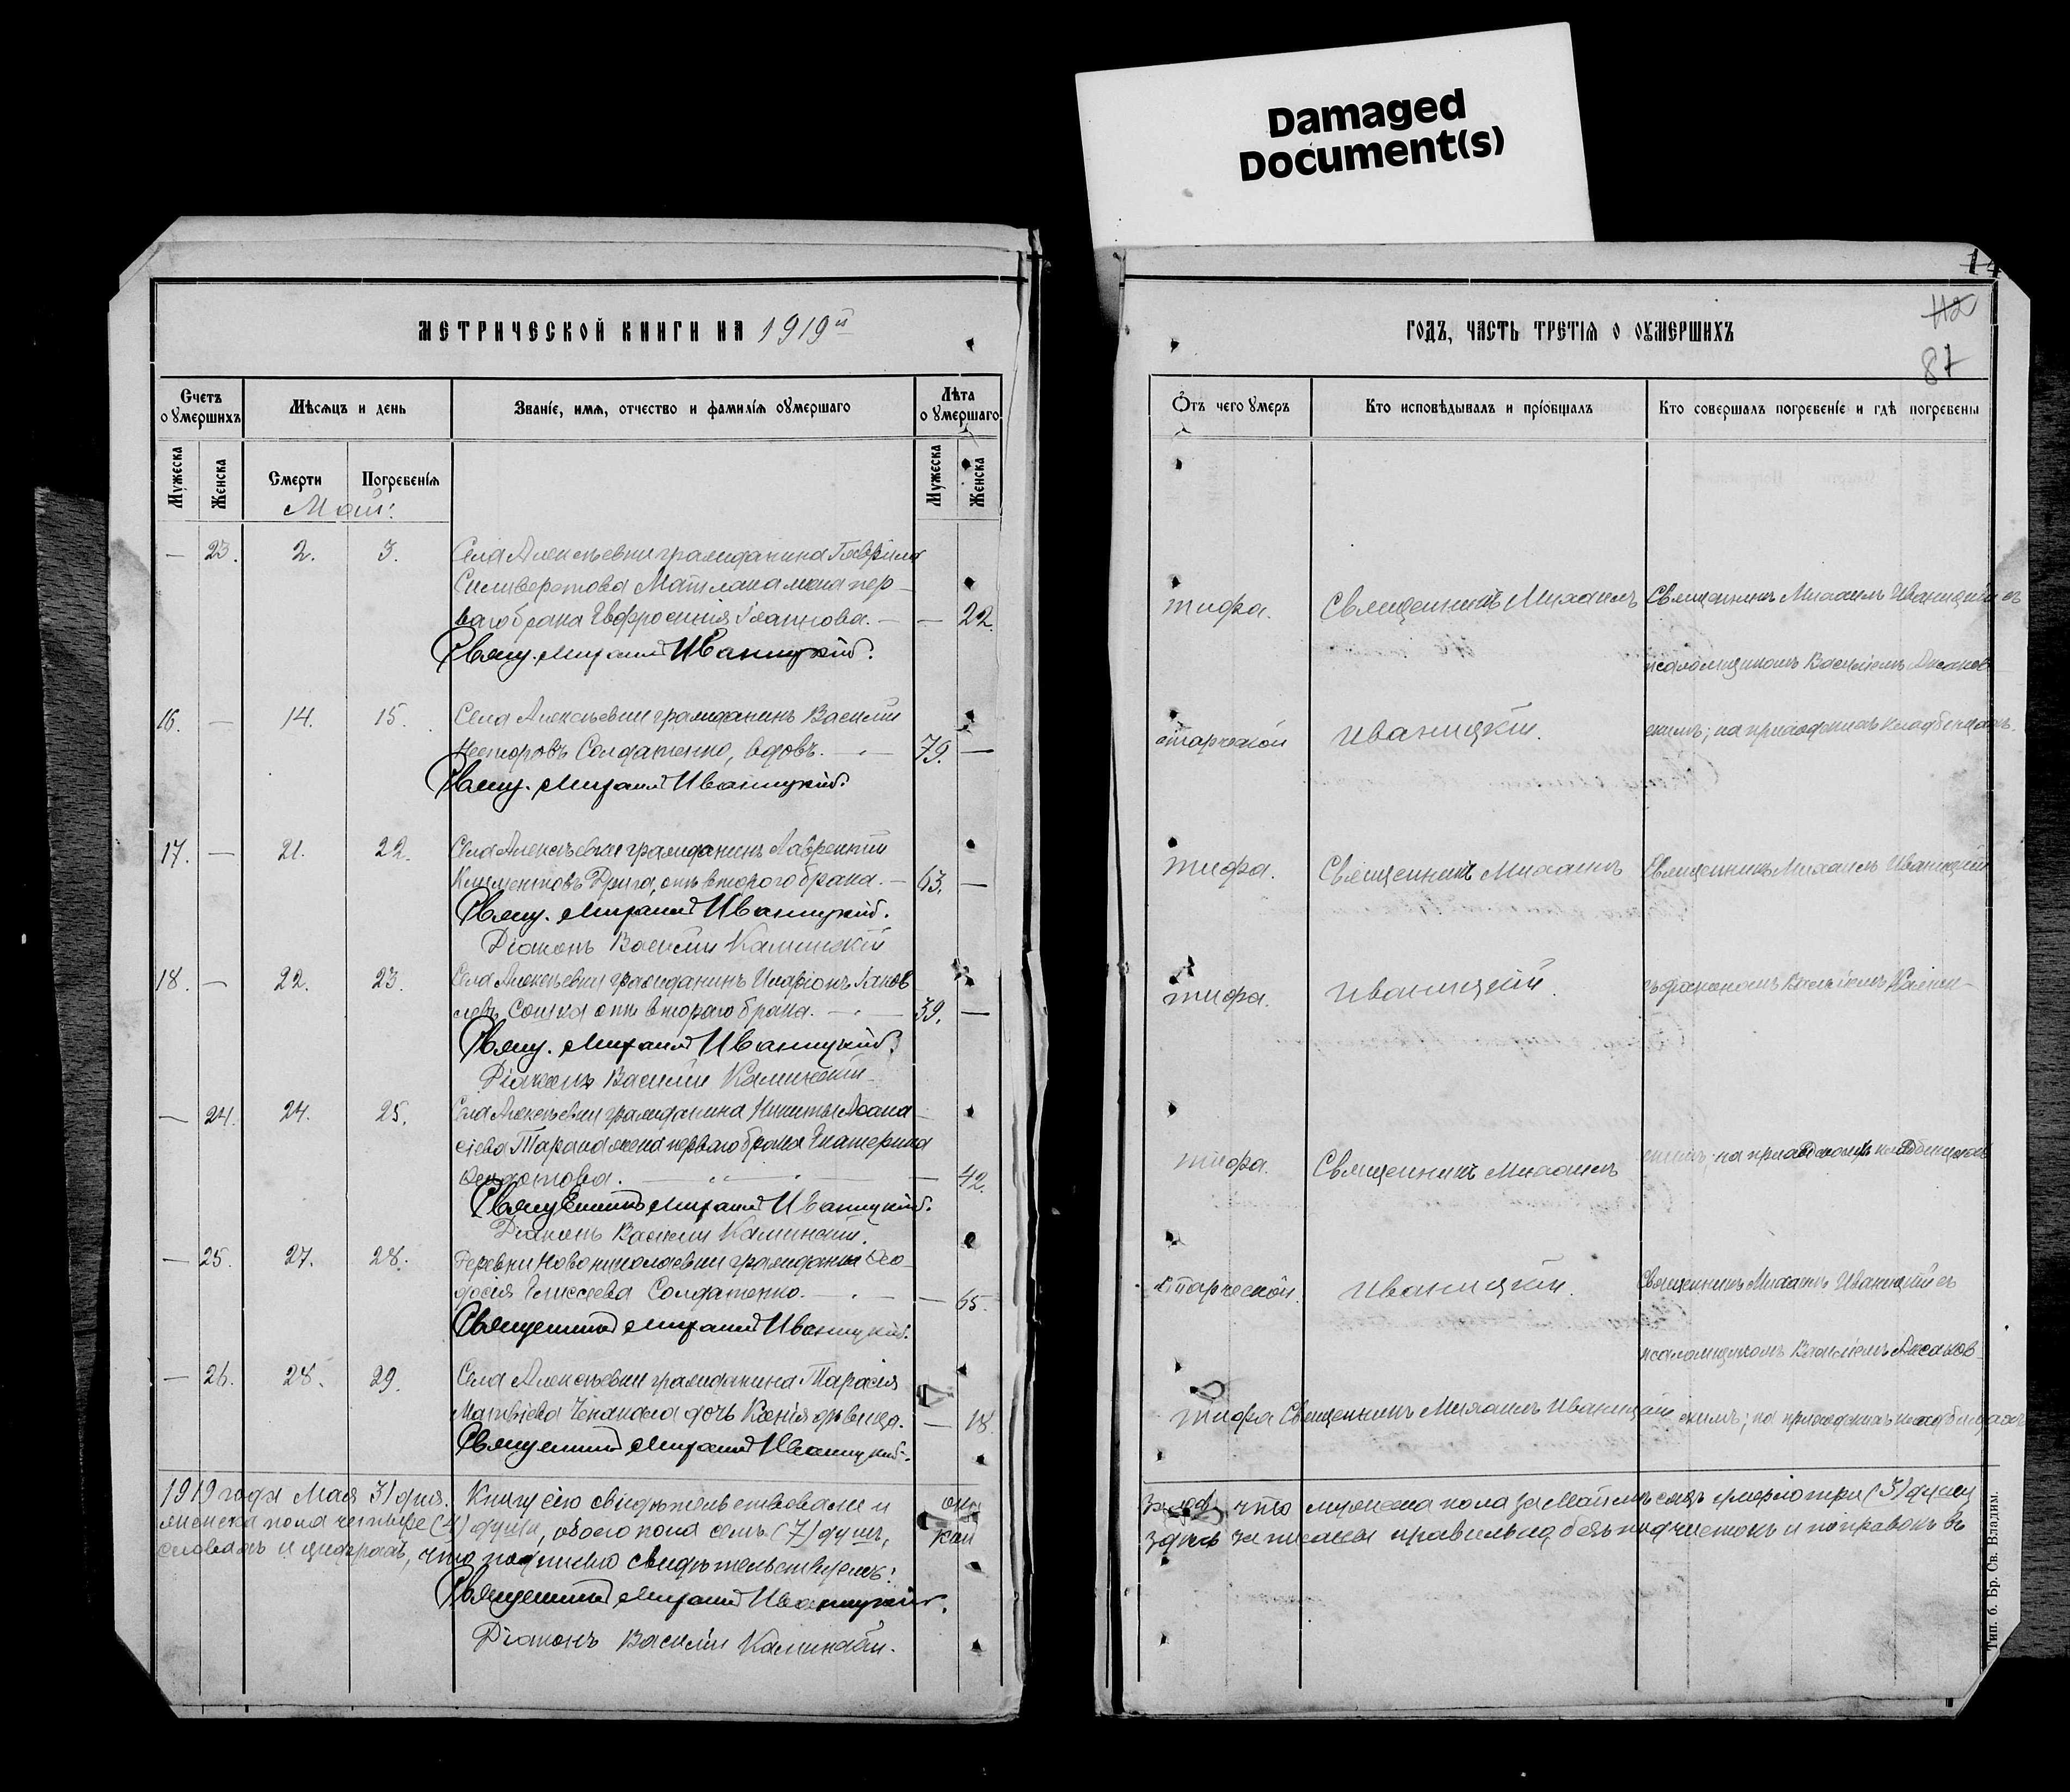 Damaged
Document(s)
МЕТРИЧЕСКОЙ КНИГИ НА 1919й
Счетъ о умершихъ
Мѣсяцъ и день
Званіе, имя, отчество и фамилія оумершаго
Лѣта оумершаго
Мужеска
Женска
Смерти
Погребенія
Мужеска
Женска
Май:
— 23. 2. 3. Села Алексѣевки гражданина Гавріила
Сильверстова жена пер-
ваго брака Евфросинія Іоаннова. — — 22.
Свящ. Михаилъ Иваницкій.
16. — 14. 15. Села Алексѣевки гражданинъ Василій
Несторовъ Солдатенко, вдовъ. — 79. —
Свящ. Михаилъ Иваницкій.
17. — 21. 22. Села Алексѣевки гражданинъ Лаврентій
Климентовъ Дрига, отъ второго брака. — 63. —
Свящ. Михаилъ Иваницкій.
Діаконъ Василій Калинскій
18. — 22. 23. Села Алексѣевки гражданинъ Иларіонъ Іаков
левъ Сошка отъ втораго брака. — 39. —
Свящ. Михаилъ Иваницкій.
Діаконъ Василій Калинскій
— 24. 24. 25. Села Алексѣевки гражданина Никиты Аѳана
сіева Тарана жена перваго брака Екатерина
— 42.
Священникъ Михаилъ Иваницкій.
Діаконъ Василій Калинскій.
— 25. 27. 28. Деревни Новониколаевки гражданка Ѳео
досія Елисеева Солдатенко. — — 65.
Священникъ Михаилъ Иваницкій.
— 26. 28. 29. Села Алексѣевки гражданина Тарасія
Матвіева дочь Ксенія дѣвица. — 18.
Священникъ Михаилъ Иваницкій.
1919 года Мая 31 дня. Книгу сію свидѣтельствовали и
женска пола четыре (4) души, обоего пола семь (7) душъ,
словахъ и цифрахъ, что подписью свидѣтельствуемъ:
Священникъ Михаилъ Иваницкій.
Діаконъ Василій Калинскій.
14
112
87
ГОДЪ, ЧАСТЬ ТРЕТІЯ О ОУМЕРШИХЪ
Отъ чего умеръ
Кто исповѣдывалъ и пріобщалъ
Кто совершалъ погребеніе и гдѣ погребены
тифа. Священникъ Михаилъ Священникъ Михаилъ Иваницкій съ
псаломщикомъ Василіемъ
старческой Иваницкій. скимъ; на приходскихъ кладбищахъ.
тифа. Священникъ Михаилъ Священникъ Михаилъ Иваницкій
тифа. Иваницкій. съ діакономъ Василіемъ Калин-
тифа. Священникъ Михаилъ скимъ; на приходскихъ кладбищахъ
старческой. Иваницкій. Священникъ Михаилъ Иваницкій съ
псаломщикомъ Василіемъ
тифа Священникъ Михаилъ Иваницкій скимъ; на приходскихъ кладбищахъ
что мужеска пола за Май мѣсяцъ умерло три (3) души
здѣсь записаны правильно, безъ подчистокъ и поправокъ въ
Тип. б. Бр. Св. Владим.